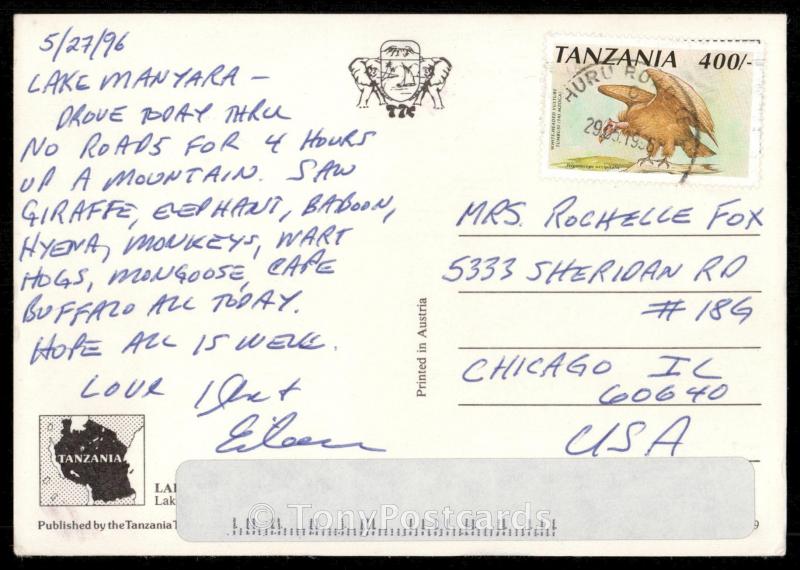 5/27/96
LAKE MANYARA -
DROVE TODAY THRU
NO ROADS FOR 4 HOURS
UP A MOUNTAIN. SAW
GIRAFFE, ELEPHANT, BABOON,
HYENA, MONKEYS, WART
HOGS, MONGOOSE, CAPE
BUFFALO ALL TODAY.
HOPE ALL IS WELL.
LOVE
Eileen
TANZANIA
LA
Lak
Published by the Tanzania T
Printed in Austria
TTC
TANZANIA
400/-
WHITE-HEADED VULTURE
HURU RO
29.05.1996
MRS. ROCHELLE FOX
5333 SHERIDAN RD
#18G
CHICAGO IL
60640
USA
© TonyPostcards
9